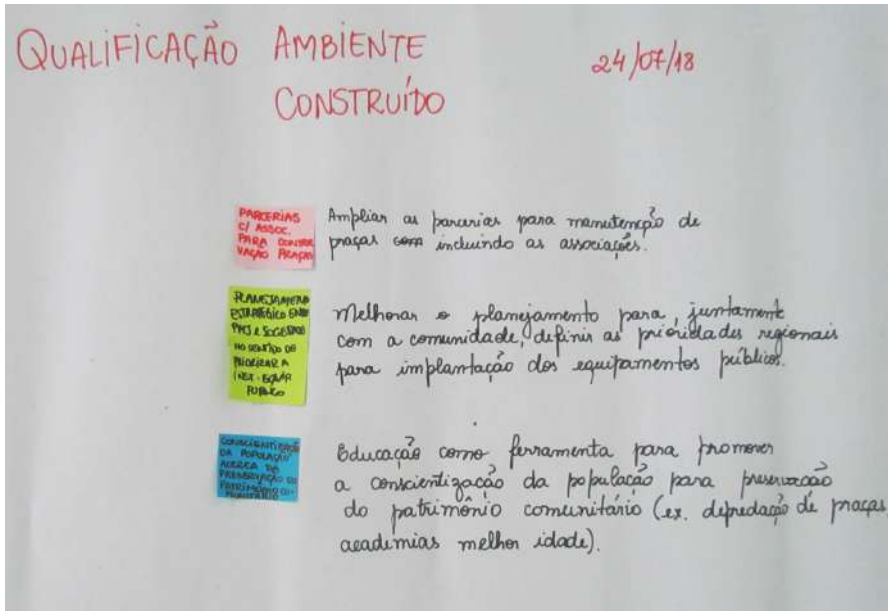 QUALIFICAÇÃO AMBIENTE
CONSTRUÍDO
24/07/18
PARCERIAS
C/ ASSOC.
PARA CONSER
VAÇÃO PRAÇAS
Ampliar as parcerias para manutenção de
praças com incluindo as associações.
PLANEJAMENTO
ESTRATÉGICO ENTRE
PMJ E SOCIEDADE
NO SENTIDO DE
PRIORIZAR A
INST. EQUIP.
PUBLICO
Melhorar o planejamento para, juntamente
com a comunidade, definir as prioridades regionais
para implantação dos equipamentos públicos.
CONSCIENTIZAÇÃO
DA POPULAÇÃO
ACERCA DA
PRESERVAÇÃO DO
PATRIMÔNIO CO-
MUNITÁRIO
Educação como ferramenta para promover
a conscientização da população para preservação
do patrimônio comunitário (ex. depredação de praças
academias melhor idade).